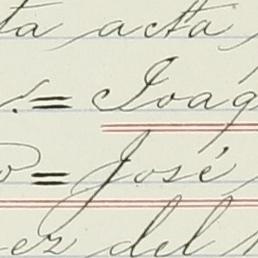 ta acta
= Joaq
= José
ez del